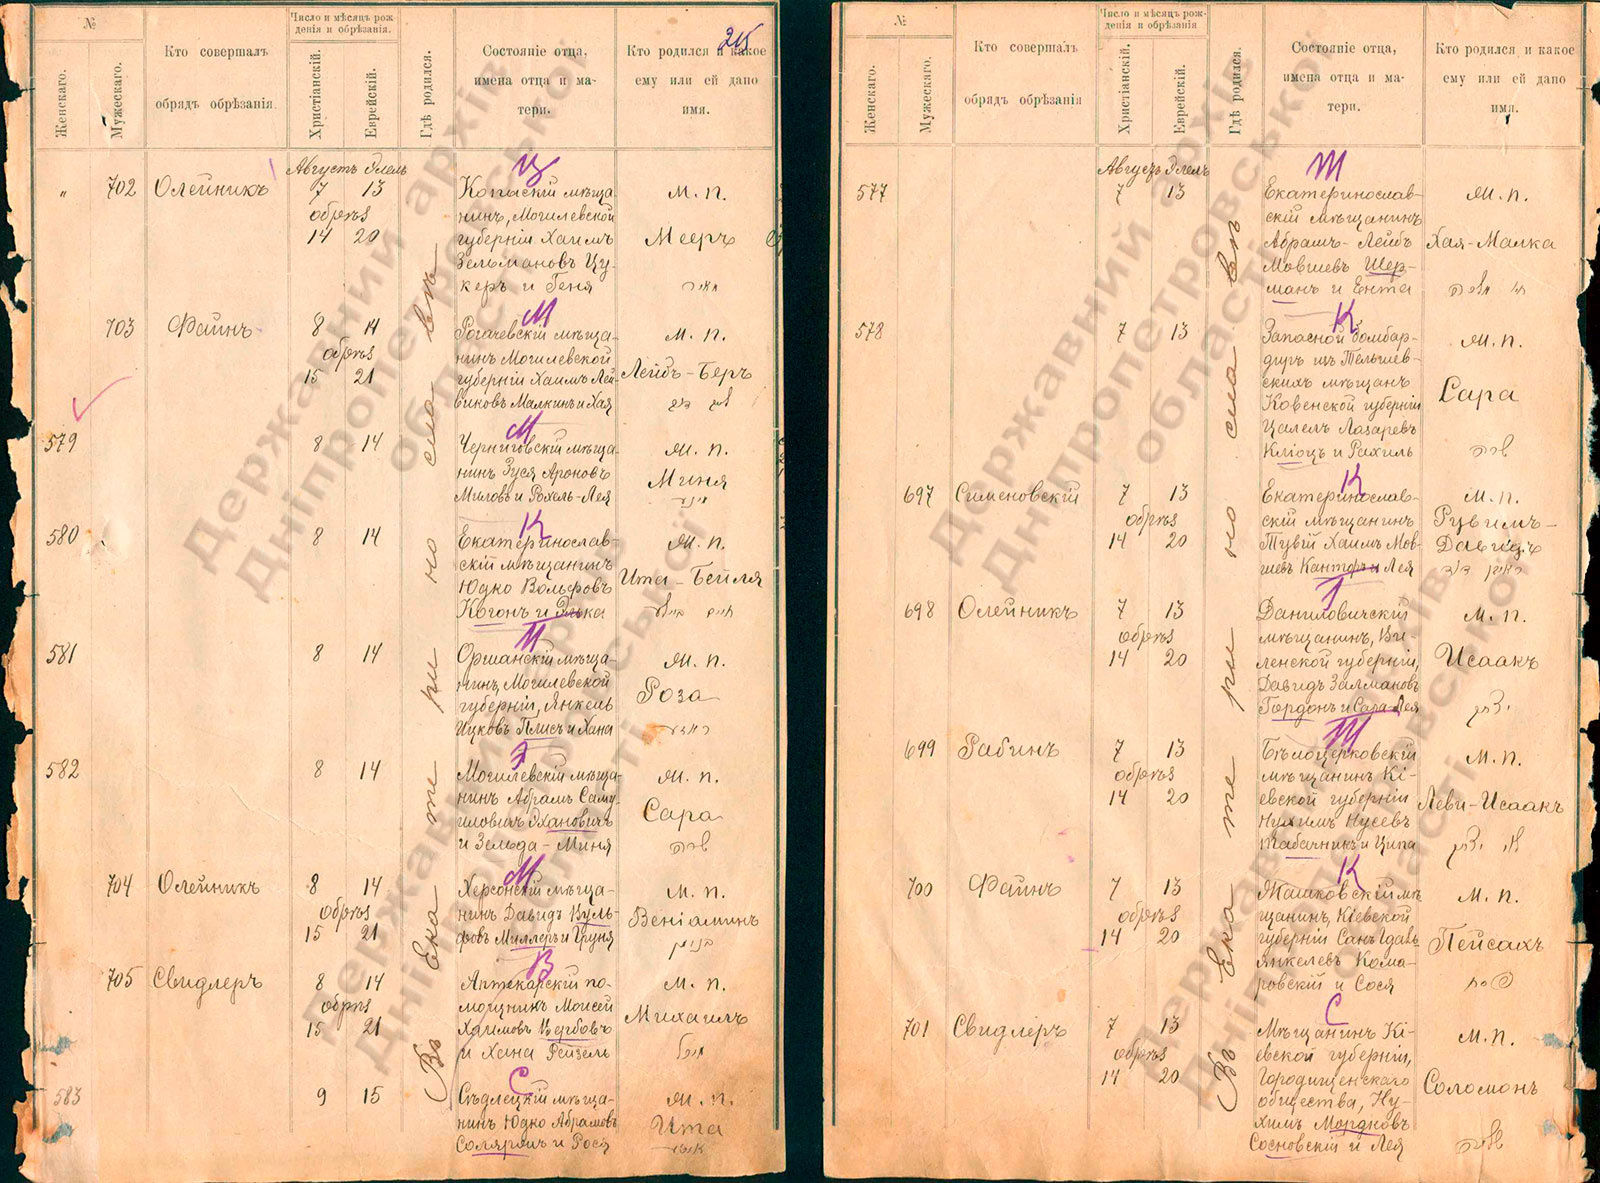 215
№
Женскаго.
Мужескаго.
Кто совершалъ
обрядъ обрѣзанія
Число и мѣсяцъ рож-
денія и обрѣзанія.
Христіанскій.
Еврейскій.
Гдѣ родился.
Состояніе отца,
имена отца и ма-
тери.
Кто родился и какое
ему или ей дано
имя.
Августъ Элель
Въ Екатеринославѣ
" 702 Олейникъ 7 13
обрѣз
14 20
Ц
Копыскій мѣща-
нинъ, Могилевской
губерніи Хаимъ
Зельмановъ Цу-
керъ и Геня
М. п.
Мееръ
מאיר
703 Файнъ 8 14
обрѣз
15 21
М
Рогачевскій мѣща-
нинъ Могилевской
губерніи Хаимъ Лей-
виковъ Малкинъ и Хая
М. п.
Лейбъ-Беръ
579 8 14
М
Черниговскій мѣща-
нинъ Зуся Ароновъ
Миловъ и Рохель-Лея
Ж. п.
Миня
580 8 14
К
Екатеринослав-
скій мѣщанинъ
Юдко Вольфовъ
Когонъ и
Ж. п.
Ита-Бейля
581 8 14
Оршанскій мѣща-
нинъ, Могилевской
губерніи, Янкель
Ицковъ Плисъ и Хана
Ж. п.
Роза
582 8 14
Могилевскій мѣща-
нинъ Абрамъ Саму-
иловичъ Эхановичъ
и Зельда-Миня
Ж. п.
Сара
שרה
704 Олейникъ 8 14
обрѣз
15 21
М
Херсонскій мѣща-
нинъ Давидъ Вуль-
фовъ Миллеръ и Груня
М. п.
Веніаминъ
בנימן
705 Свидлеръ 8 14
обрѣз
15 21
В
Аптекарскій по-
мощникъ Моисей
Хаимовъ
и Хана Рейзель
М. п.
Михаилъ
583 9 15
С
Сѣдлецкій мѣща-
нинъ Юдко Абрамовъ
и Рося
Ж. п.
Ита
№
Женскаго.
Мужескаго.
Кто совершалъ
обрядъ обрѣзанія
Число и мѣсяцъ рож-
денія и обрѣзанія.
Христіанскій.
Еврейскій.
Гдѣ родился.
Состояніе отца,
имена отца и ма-
тери.
Кто родился и какое
ему или ей дано
имя.
Августъ Элель
Въ Екатеринославѣ
577 7 13
Ш
Екатеринослав-
скій мѣщанинъ
Абрамъ-Лейбъ
Мовшевъ Шер-
манъ и Ента
Ж. п.
Хая-Малка
חי מלכה
578 7 13
К
Запасной бомбар-
диръ изъ Тельшев-
скихъ мѣщанъ
Ковенской губерніи
Цалелъ Лазаревъ
Кліоцъ и Рахиль
Ж. п.
Сара
שרה
697 Сименовскій 7 13
обрѣз
14 20
К
Екатеринослав-
скій мѣщанинъ
Тувій Хаимъ Мов-
шевъ Канторъ и Лея
М. п.
Рувимъ-
Давидъ
ראובן דוד
698 Олейникъ 7 13
обрѣз
14 20
Даниловичскій
мѣщанинъ, Ви-
ленской губерніи,
Давидъ Залмановъ
Гордонъ и Сара-Лея
М. п.
Исаакъ
יצחק
699 Рабинъ 7 13
обрѣз
14 20
Бѣлоцерковскій
мѣщанинъ Кі-
евской губерніи
Нухимъ Нусевъ
Табачникъ и Ципа
М. п.
Леви-Исаакъ
לוי יצחק
700 Файнъ 7 13
обрѣз
14 20
К
Жашковскій мѣ-
щанинъ, Кіевской
губерніи
Янкелевъ Кома-
ровскій и Сося
М. п.
Пейсахъ
פסח
701 Свидлеръ 7 13
обрѣз
14 20
С
Мѣщанинъ Кі-
евской губерніи,
Городищенскаго
общества, Ну-
химъ Мордковъ
Сосновскій и Лея
М. п.
Соломонъ
שלמה
Державний архів
Дніпропетровської
області